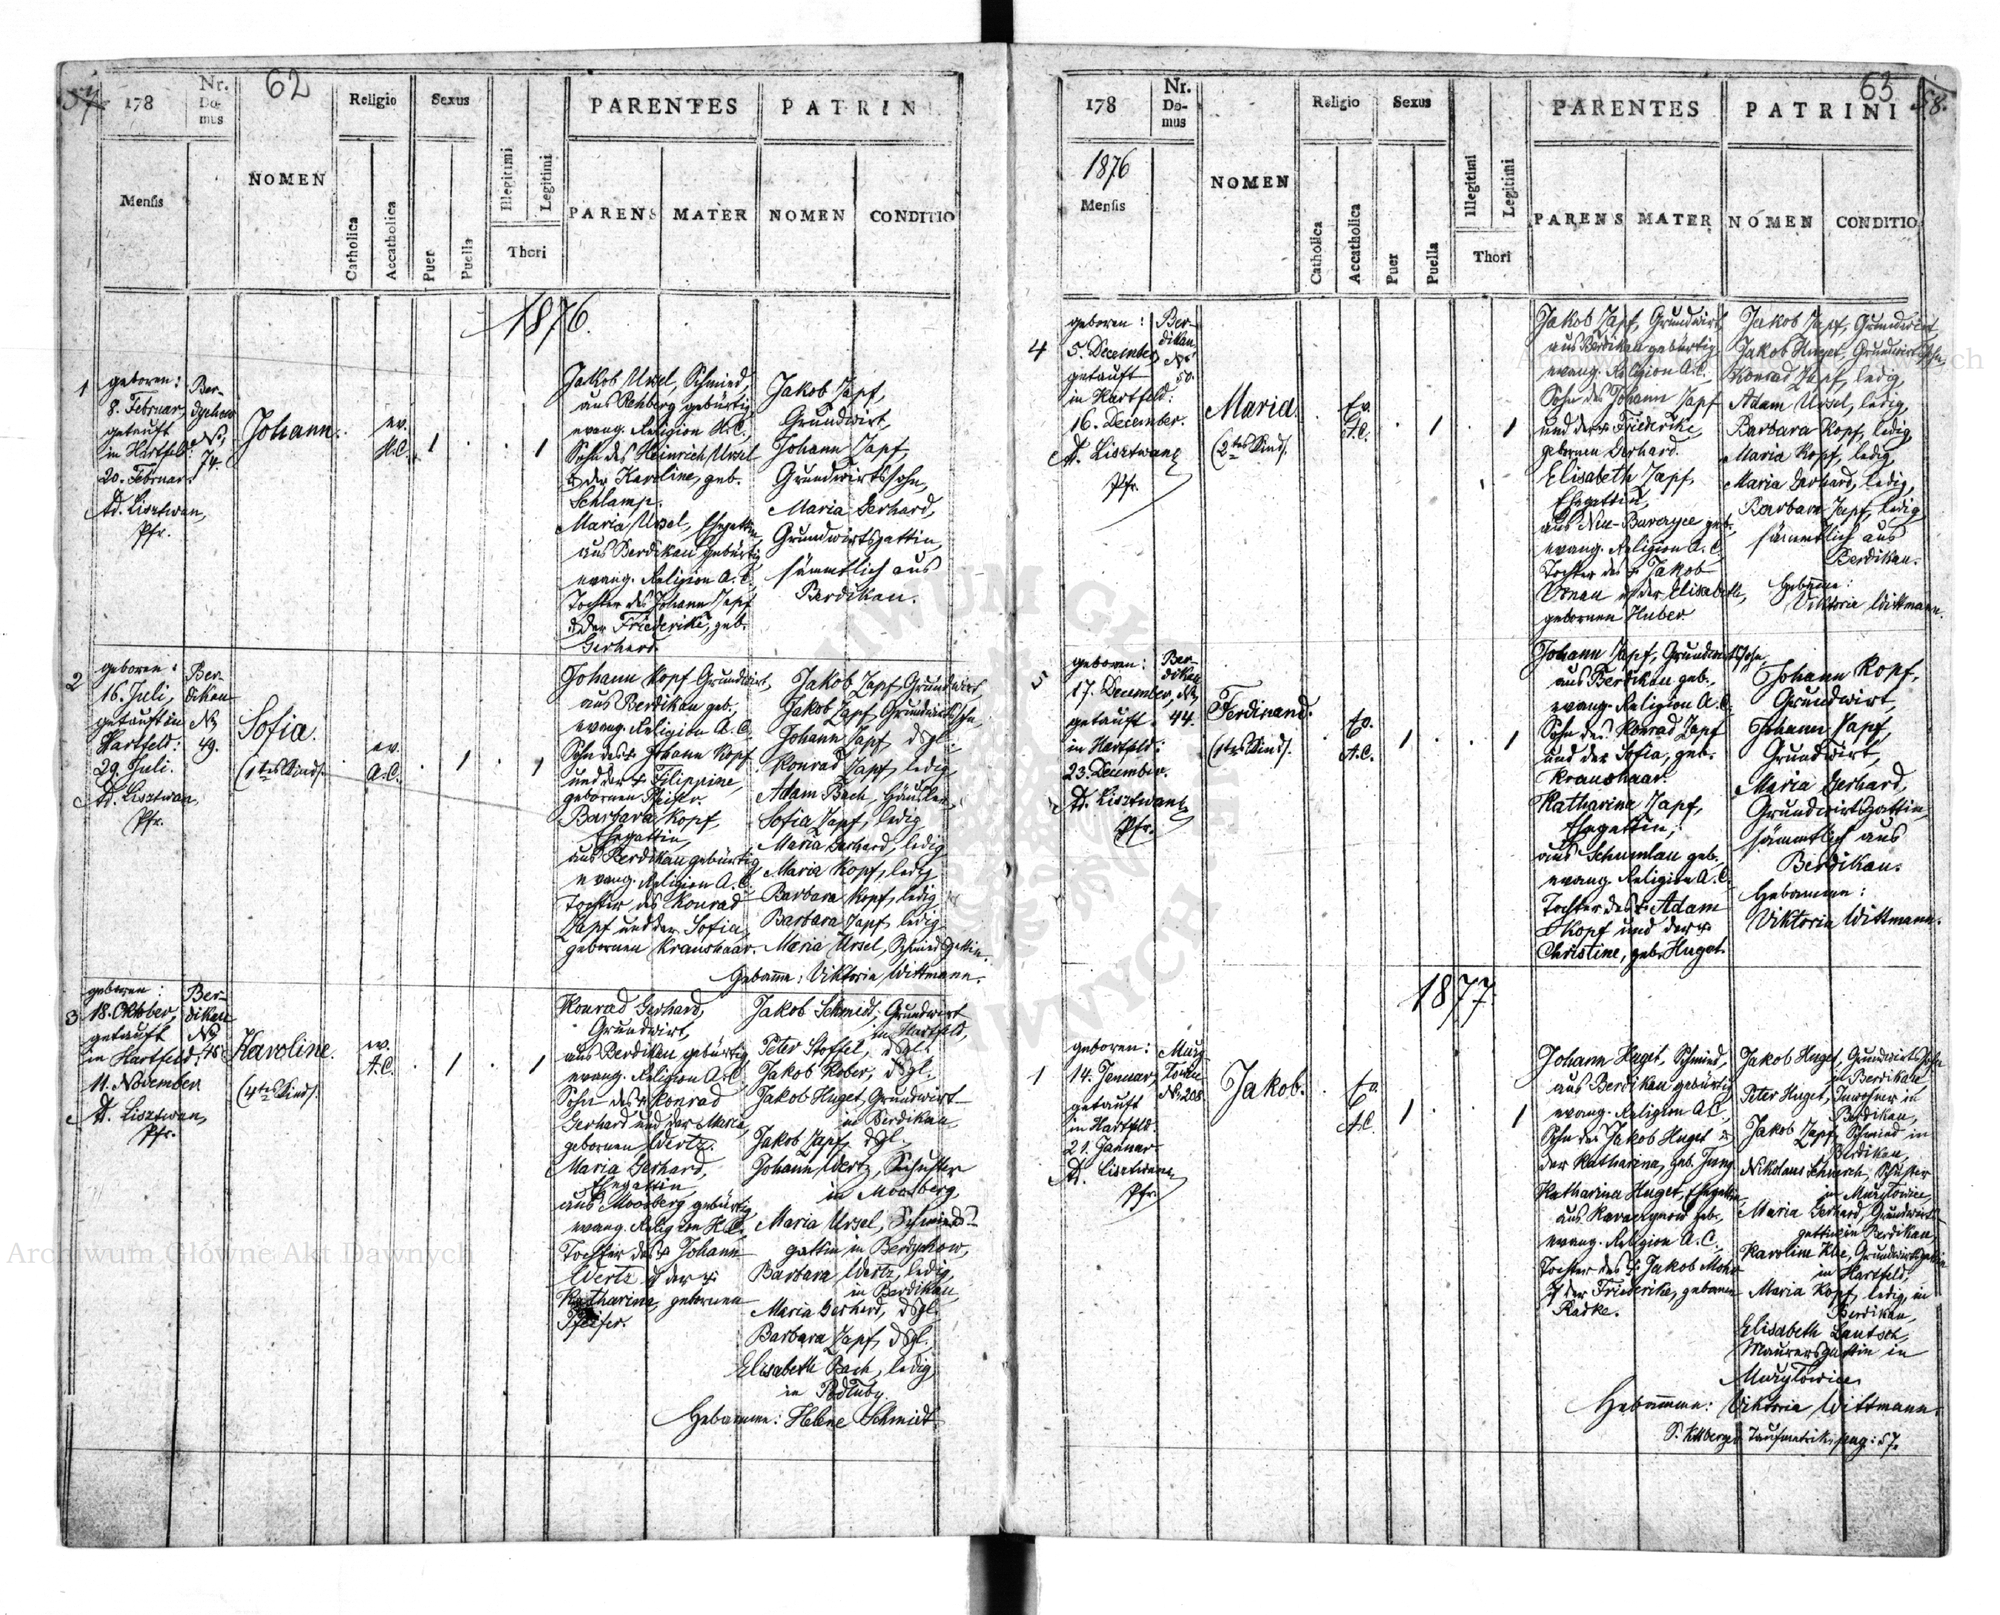 62
178
Nr. Domus
NOMEN
Religio
Sexus
PARENTES
PATRIN
Mensis
Catholica
Accatholica
Puer
Puella
Illegitimi
Legitimi
Thori
PARENS
MATER
NOMEN
CONDITIO
1876.
1
geboren:
8. Februar,
getauft
in Hartfeld:
20. Februar.
Ad. Lisztwan,
Pfr.
No
74.
Johann.
ev.
H.C.
1
1
Jakob Ursel, Schmied,
aus Rehberg gebürtig
evang. Religion H.C.,
Sohn des Heinrich Ursel
& der Karoline, geb.
Schlamp.
Maria Ursel, Ehegattin,
aus Berdikau gebürtig
evang. Religion A.C.,
Tochter des Johann Zapf
& der Friederike, geb.
Gerhard.
Jakob Zapf,
Grundwirt,
Johann Zapf,
Grundwirtssohn,
Maria Gerhard,
Grundwirtsgattin,
sämmtlich aus
Berdikau.
2
geboren:
16. Juli,
getauft in
Hartfeld:
29. Juli.
Ad. Lisztwan,
Pfr.
Berdikau
No
49.
Sofia.
(1tes Kind).
ev.
A.C.
1
1
Johann Kopf Grundwirt,
aus Berdikau geb.,
evang. Religion A.C.,
Sohn des + Johann Kopf
und der + Filippine,
gebornen
Barbara Kopf,
Ehegattin,
aus Berdikau gebürtig,
evang. Religion A.C.
Tochter des Konrad
Zapf und der Sofia,
gebornen Kraushaar.
Jakob Zapf, Grundwirt,
Jakob Zapf, Grundwirtssohn,
Johann Zapf dsgl.
Konrad Zapf, ledig,
Adam Bach, Häusler,
Sofia Zapf, ledig
Maria Gerhard, ledig
Maria Kopf, ledig
Barbara Kopf, ledig,
Barbara Zapf, ledig
Maria Ursel, Schmiedsgattin.
Hebamme: Viktoria Wittmann.
3
geboren:
18. Oktober,
getauft
in Hartfeld:
11. November
Ad. Lisztwan,
Pfr.
Berdikau
No
45.
Karoline.
(4tes Kind).
ev.
A.C.
1
1
Konrad Gerhard,
Grundwirt,
aus Berdikau gebürtig
evang. Religion A.C.,
Sohn des + Konrad
Gerhard und der Maria,
gebornen Wertz.
Maria Gerhard,
Ehegattin,
aus Moosberg gebürtig
evang. Religion H.C.,
Tochter des + Johann
Wertz & der +
Katharina, gebornen
Pfeifer.
Jakob Schmidt, Grundwirt
in Hartfeld,
Peter Stoffel, dsgl.
Jakob Kober, dsgl.,
Jakob Huget, Grundwirt
in Berdikau,
Jakob Zapf, dsgl.,
Johann Wertz, Schuster
in Moosberg,
Maria Ursel, Schmieds-
gattin in Berdychow,
Barbara Wertz, ledig,
in Berdikau,
Maria Gerhard, dsgl.
Barbara Zapf, dsgl.
Elisabeth Bach, ledig
in Podłuby.
Hebamme: Helene Schmidt
63
58.
178
Nr. Domus
NOMEN
Religio
Sexus
PARENTES
PATRINI
1876
Mensis
Catholica
Accatholica
Puer
Puella
Illegitimi
Legitimi
Thori
PARENS
MATER
NOMEN
CONDITIO
4
geboren:
5. December,
getauft
in Hartfeld:
16. December.
Ad. Lisztwan,
Pfr.
Berdikau
No
50.
Maria.
(2tes Kind).
Ev.
A.C.
1
1
Jakob Zapf, Grundwirt,
aus Berdikau gebürtig
evang. Religion A.C.,
Sohn des Johann Zapf
und der + Friederike,
gebornen Gerhard.
Elisabeth Zapf,
Ehegattin,
evang. Religion A.C.
Tochter des + Jakob
und der Elisabeth,
gebornen Huber.
Jakob Zapf, Grundwirt,
Jakob Huget, Grundwirtssohn,
Konrad Zapf, ledig,
Adam Ursel, ledig,
Barbara Kopf, ledig,
Maria Kopf, ledig,
Maria Gerhard, ledig,
Barbara Zapf, ledig,
sämmtlich aus
Berdikau.
Hebamme:
Viktoria Wittmann.
5
geboren:
17. December,
getauft
in Hartfeld:
23. December.
Ad. Lisztwan,
Pfr.
Berdikau
No
44.
Ferdinand.
(1tes Kind).
Ev.
A.C.
1
1
Johann Zapf, Grundwirtssohn
aus Berdikau geb.,
evang. Religion A.C.
Sohn des Konrad Zapf
und der Sofia, geb.
Kraushaar.
Katharina Zapf,
Ehegattin,
aus Schumlau geb.,
evang. Religion A.C.
Tochter des + Adam
Kopf und der +
Christine, geb. Huget.
Johann Kopf,
Grundwirt,
Johann Zapf,
Grundwirt,
Maria Gerhard,
Grundwirtsgattin,
sämmtlich aus
Berdikau.
Hebamme:
Viktoria Wittmann.
1877.
1
geboren:
14. Januar,
getauft
in Hartfeld
21. Januar
Ad. Lisztwan,
Pfr.
No 208
Jakob.
Ev.
A.C.
1
1
Johann Huget, Schmied,
aus Berdikau gebürtig
evang. Religion A.C.,
Sohn des Jakob Huget &
der Katharina, geb. Jung.
Katharina Huget, Ehegattin,
evang. Religion A.C.,
Tochter des + Jakob Mohr
& der Friederike, gebornen
Radke.
Jakob Huget, Grundwirtssohn
in Berdikau,
Peter Huget, Inwohner in
Berdikau,
Jakob Zapf, Schmied in
Berdikau,
Nikolaus Schmich, Schuster
in Mużyłowice,
Maria Gerhard, Grundwirts-
gattin in Berdikau,
Karoline Klee, Grundwirtsgattin
in Hartfeld,
Maria Kopf, ledig, in
Berdikau,
Elisabeth Lautsch,
Maurersgattin in
Mużyłowice.
Hebamme: Viktoria Wittmann.
Taufmatrik, pag: 57.
Archiwum Główne Akt Dawnych